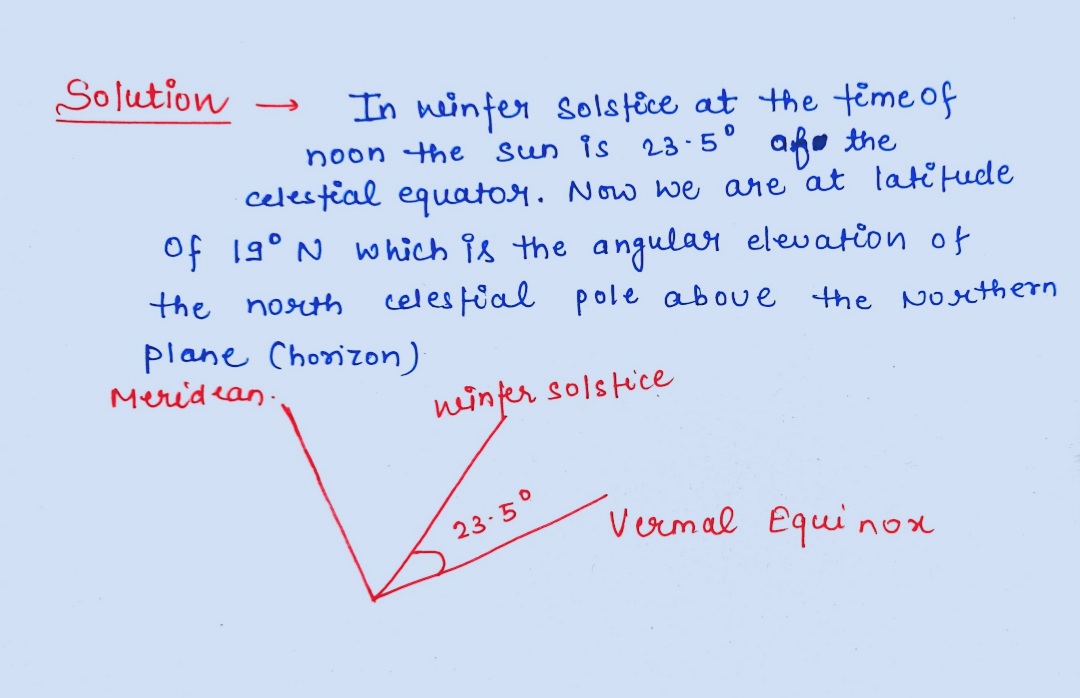 Solution → In winter solstice at the time of
noon the sun is 23.5° the
celestial equator. Now we are at latitude
of 19° N which is the angular elevation of
the north celestial pole above the Northern
plane (horizon)
Meridean.
winter solstice
23.5°
Vermal Equinox